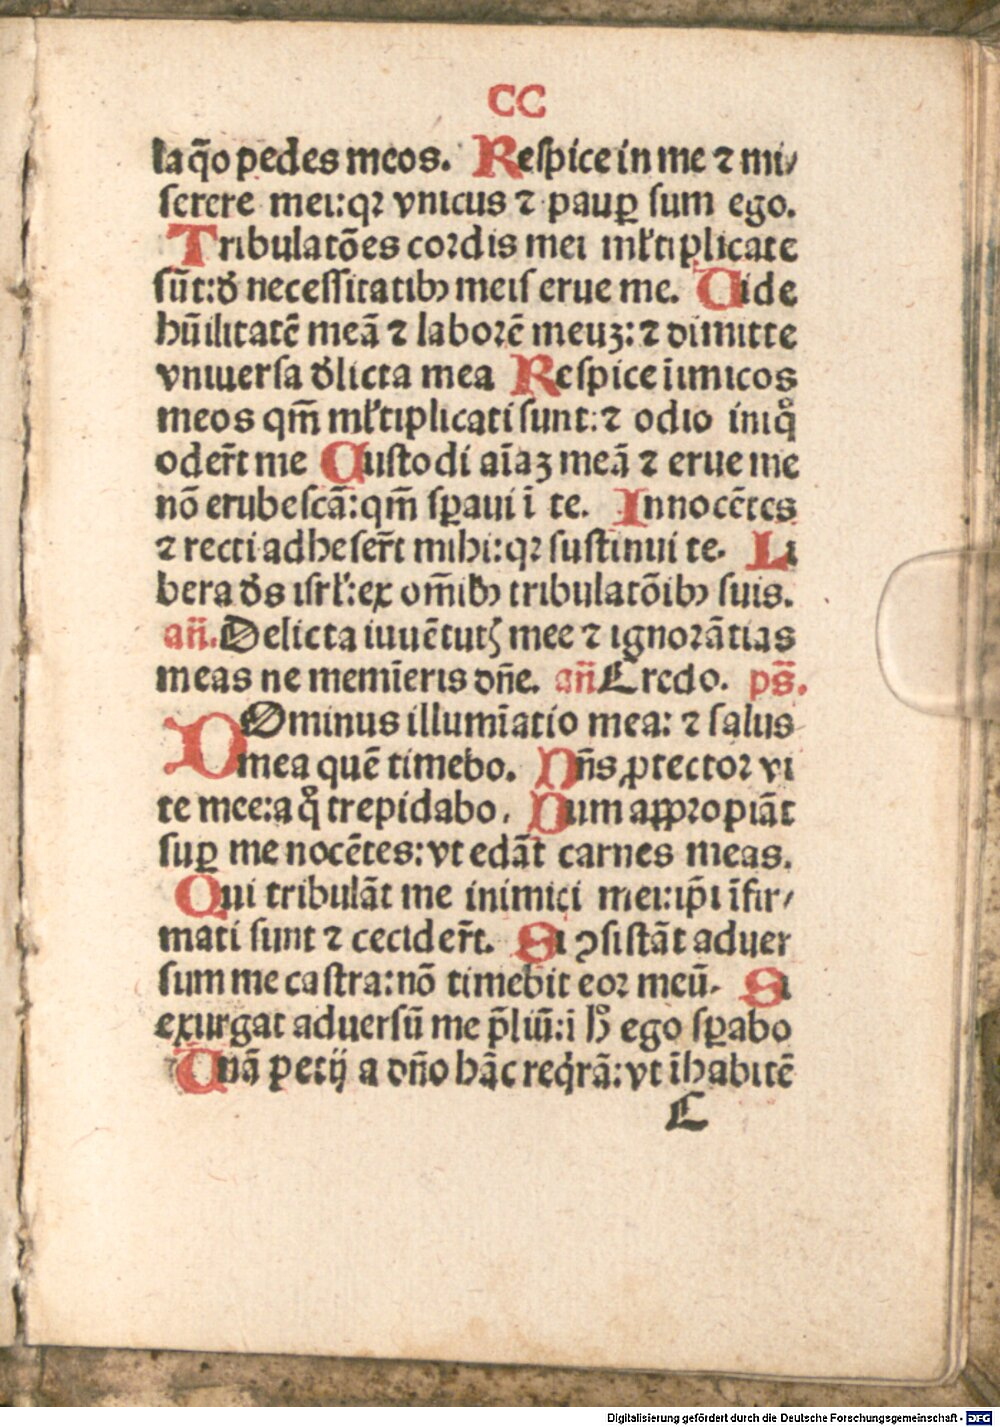 CC
laq̄o pedes meos. Respice in me ⁊ mi/
serere mei:qꝛ vnicus ⁊ paup̱ sum ego.
Tribulatōes cordis mei ml̓tiplicate
sūt:ꝺ̓ necessitatibꝫ meis erue me. Uide
hūilitatē meā ⁊ laborē meuꝫ: ⁊ dimitte
vniuersa ꝺ̓licta mea Respice iīmicos
meos qm̄ ml̓tiplicati sunt:⁊ odio iniqͦ
oder̄t me Custodi aīaꝫ meā ⁊ erue me
nō erubescā:qm̄ sꝑaui ī te. Innocētes
⁊ recti adheser̄t mihi:qꝛ sustinui te. Li
bera ꝺ̓s isrl̓:ex om̄ibꝫ tribulatōibꝫ suis.
an̄. Delicta iuuētutꝭ mee ⁊ ignorātias
meas ne memīeris dn̄e. an̄ Credo. ps̄.
DOminus illumīatio mea: ⁊ salus
mea quē timebo. Dn̄s ꝓtector vi
te mee:a qͦ trepidabo. Dum aꝓpropiāt
suꝑ me nocētes:vt edāt carnes meas.
Qui tribulāt me inimici mei:ip̄i īfir/
mati sunt ⁊ cecider̄t. Si ꝯsistāt aduer
sum me castra:nō timebit cor meū. Si
exurgat aduersū me p̄liū:i hͦ ego sꝑabo
Unā petij a dn̄o hāc reqͥrā:vt īhabitē
C
Digitalisierung gefördert durch die Deutsche Forschungsgemeinschaft - DFG